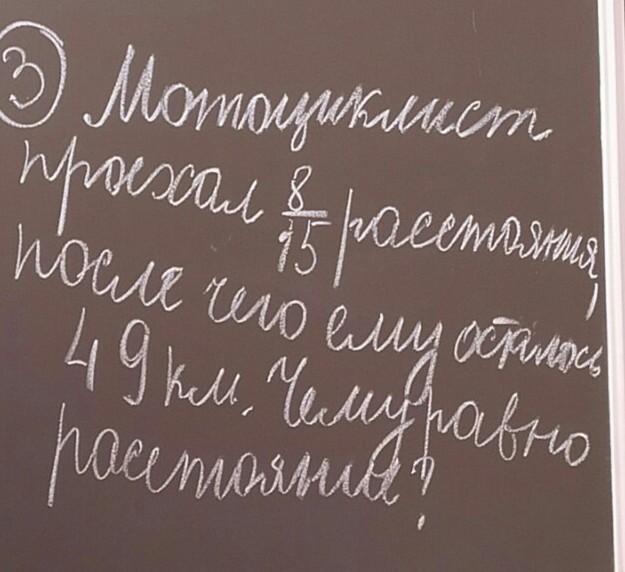 3 Мотоциклист
проехал 8/15 расстояния,
после чего ему осталось
49 км. Чему равно
расстояние?